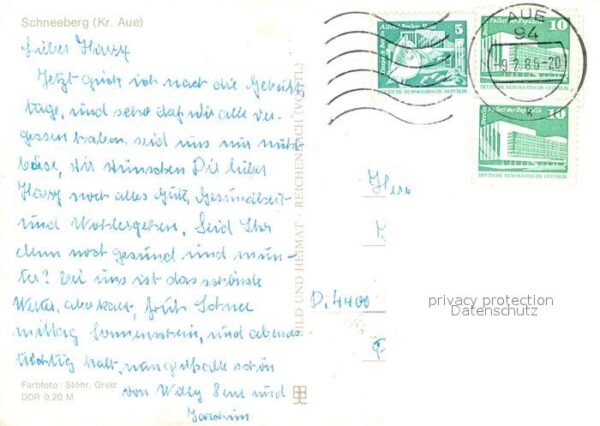 Schneeberg (Kr. Aue)
Lieber Harry
Jetzt guck ich nach die Geburts
tage, und sehe daß wir alle ver-
gessen haben, seid uns nur nicht
böse, Wir wünschen Dir lieber
Harry noch alles Gute, Gesundheit
und Wohlergehen. Seid Ihr
denn noch gesund und mun-
ter? Bei uns ist das schönste
Wetter, aber kalt, früh Schnee
mittag Sonnenschein, und abends
kalt, schön
von Willy und
Farbfoto: Stöhr, Greiz
DDR 0,20 M
BILD UND HEIMAT · REICHENBACH (VOGTL)
AUE
94
-9.2.86-20
5
DEUTSCHE DEMOKRATISCHE REPUBLIK
Berlin, Palast der Republik
10
DEUTSCHE DEMOKRATISCHE REPUBLIK
Berlin, Palast der Republik
10
DEUTSCHE DEMOKRATISCHE REPUBLIK
Herr
D. 4400
privacy protection
Datenschutz